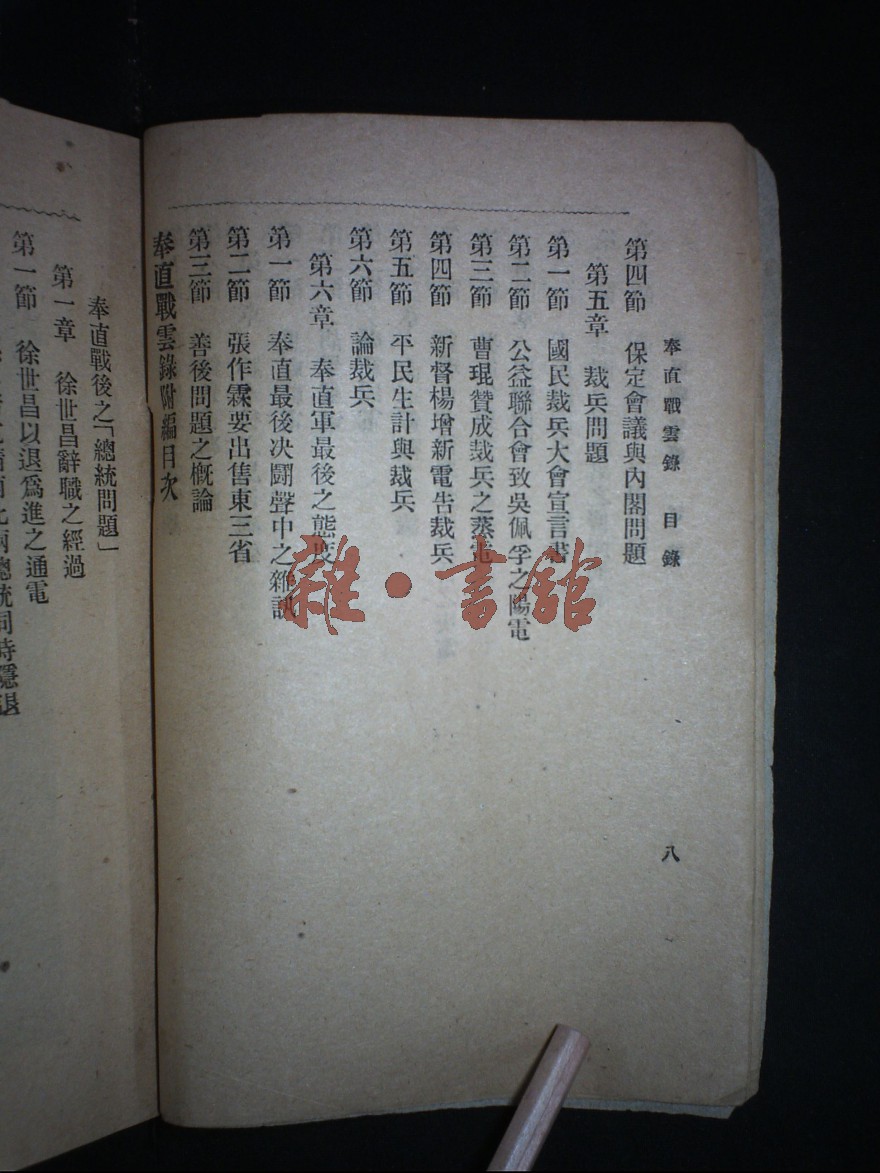 奉直戰雲錄 目錄 八
第四節 保定會議與內閣問題
第五章 裁兵問題
第一節 國民裁兵大會宣言書
第二節 公益聯合會致吳佩孚之陽電
第三節 曹琨贊成裁兵之蒸電
第四節 新督楊增新電告裁兵
第五節 平民生計與裁兵
第六節 論裁兵
第六章 奉直軍最後之態度
第一節 奉直最後決鬪聲中之雜訊
第二節 張作霖要出售東三省
第三節 善後問題之概論
奉直戰雲錄附編目次
奉直戰後之「總統問題」
第一章 徐世昌辭職之經過
第一節 徐世昌以退爲進之通電
兩總統同時隱退
雜·書館